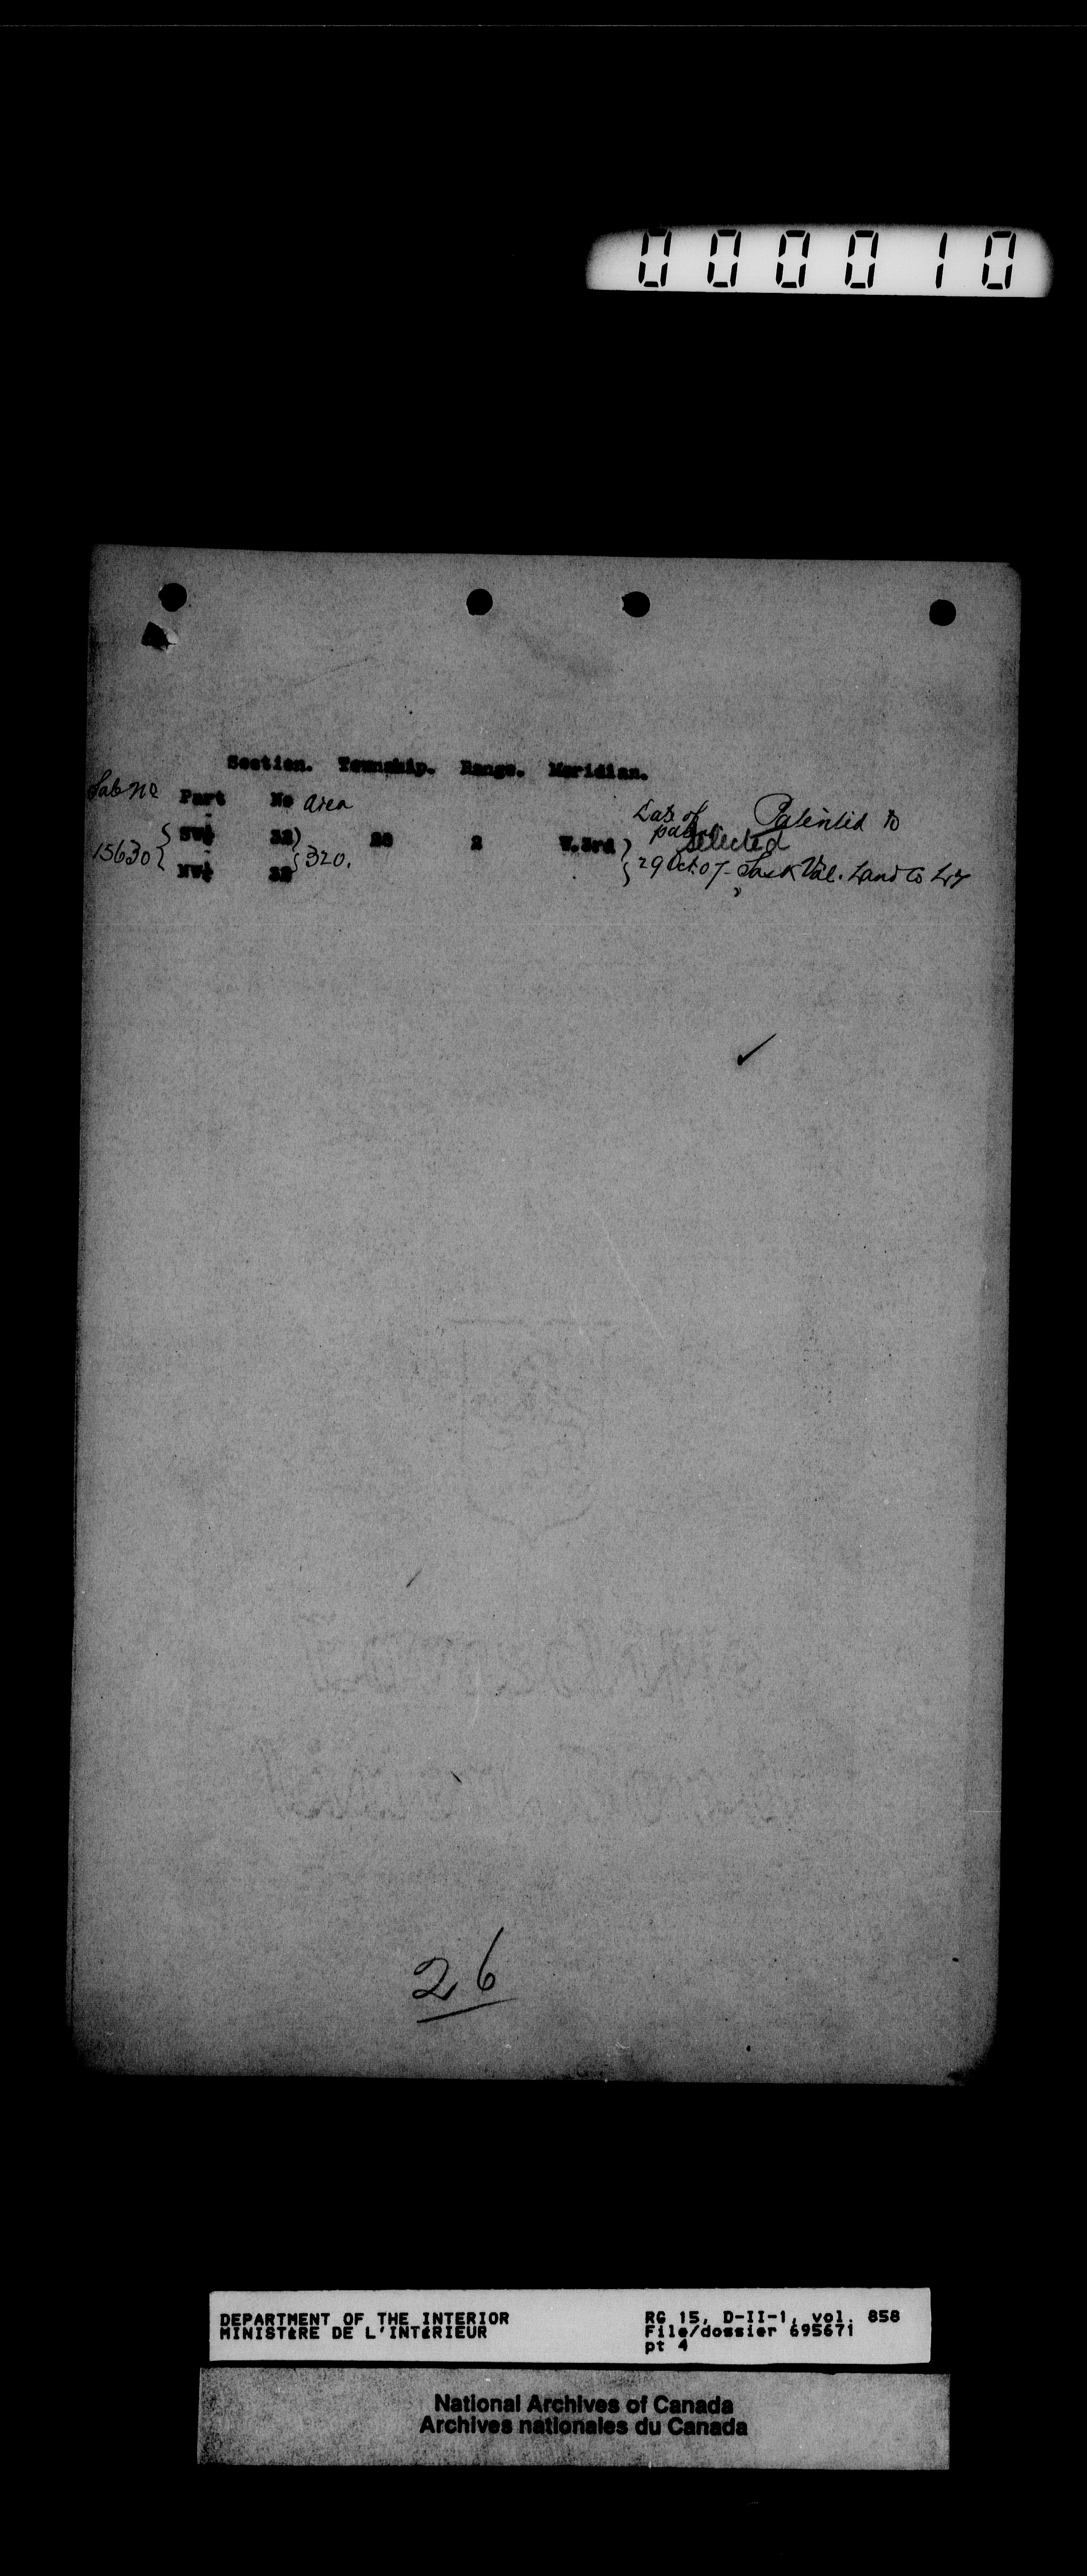 000010
Section. Township. Range. Meridian.
Sale No Part No Area Date of patent Patented to
selected
15630 { SW¼ 32 } 320. 28 2 W.3rd } 29 Oct. 07 - Sask Val. Land Co
NW¼ 32
✓
26
DEPARTMENT OF THE INTERIOR
MINISTÈRE DE L'INTÉRIEUR
RG 15, D-II-1, vol. 858
File/dossier 695671
pt 4
National Archives of Canada
Archives nationales du Canada